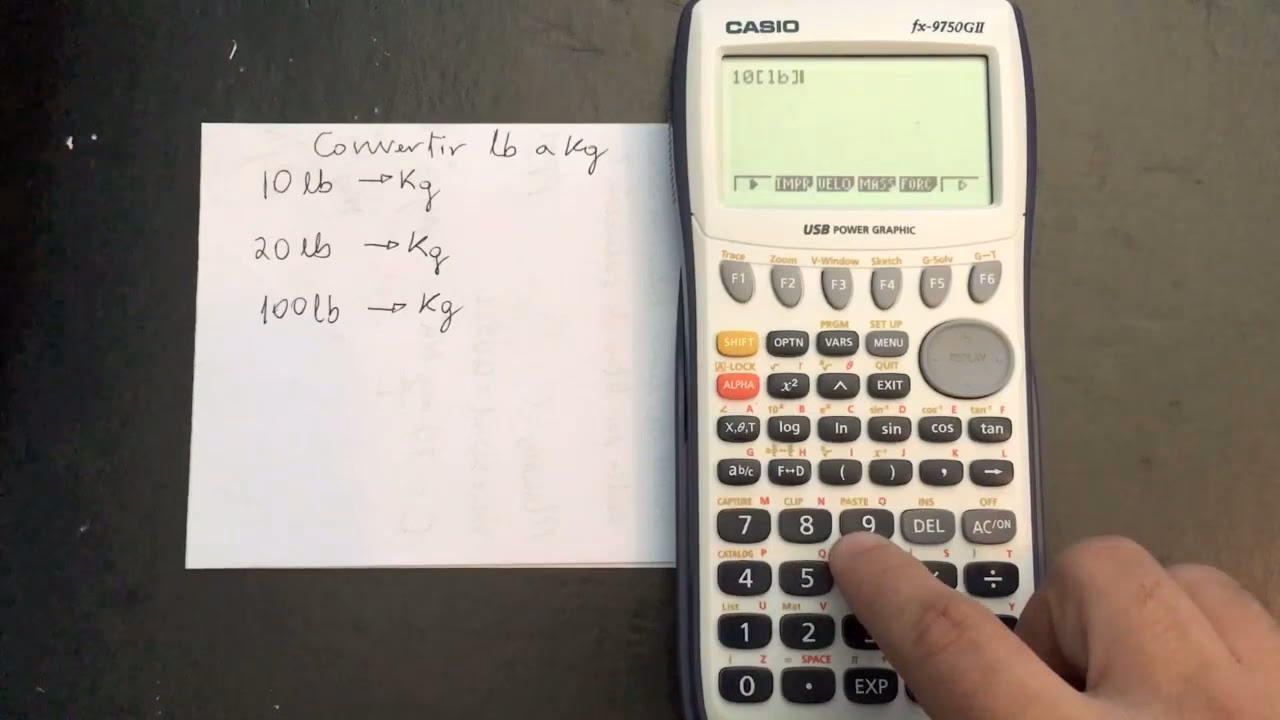 Convertir lb a Kg
10 lb → Kg
20 lb → Kg
100 lb → Kg
CASIO fx-9750GII
10[lb]
TMPR VELO MASS FORC
USB POWER GRAPHIC
Trace Zoom V-Window Sketch G-Solv G↔T
F1 F2 F3 F4 F5 F6
PRGM SET UP
SHIFT OPTN VARS MENU
REPLAY
A-LOCK √ r θ QUIT
ALPHA x² ^ EXIT
∠ A 10ˣ B eˣ C sin⁻¹ D cos⁻¹ E tan⁻¹ F
X,θ,T log ln sin cos tan
G H I x⁻¹ J K L
ab/c F↔D ( ) , →
CAPTURE M CLIP N PASTE O INS OFF
7 8 9 DEL AC/ON
CATALOG P Q S T
4 5 ÷
List U Mat V Y
1 2
i Z = SPACE π
0 . EXP